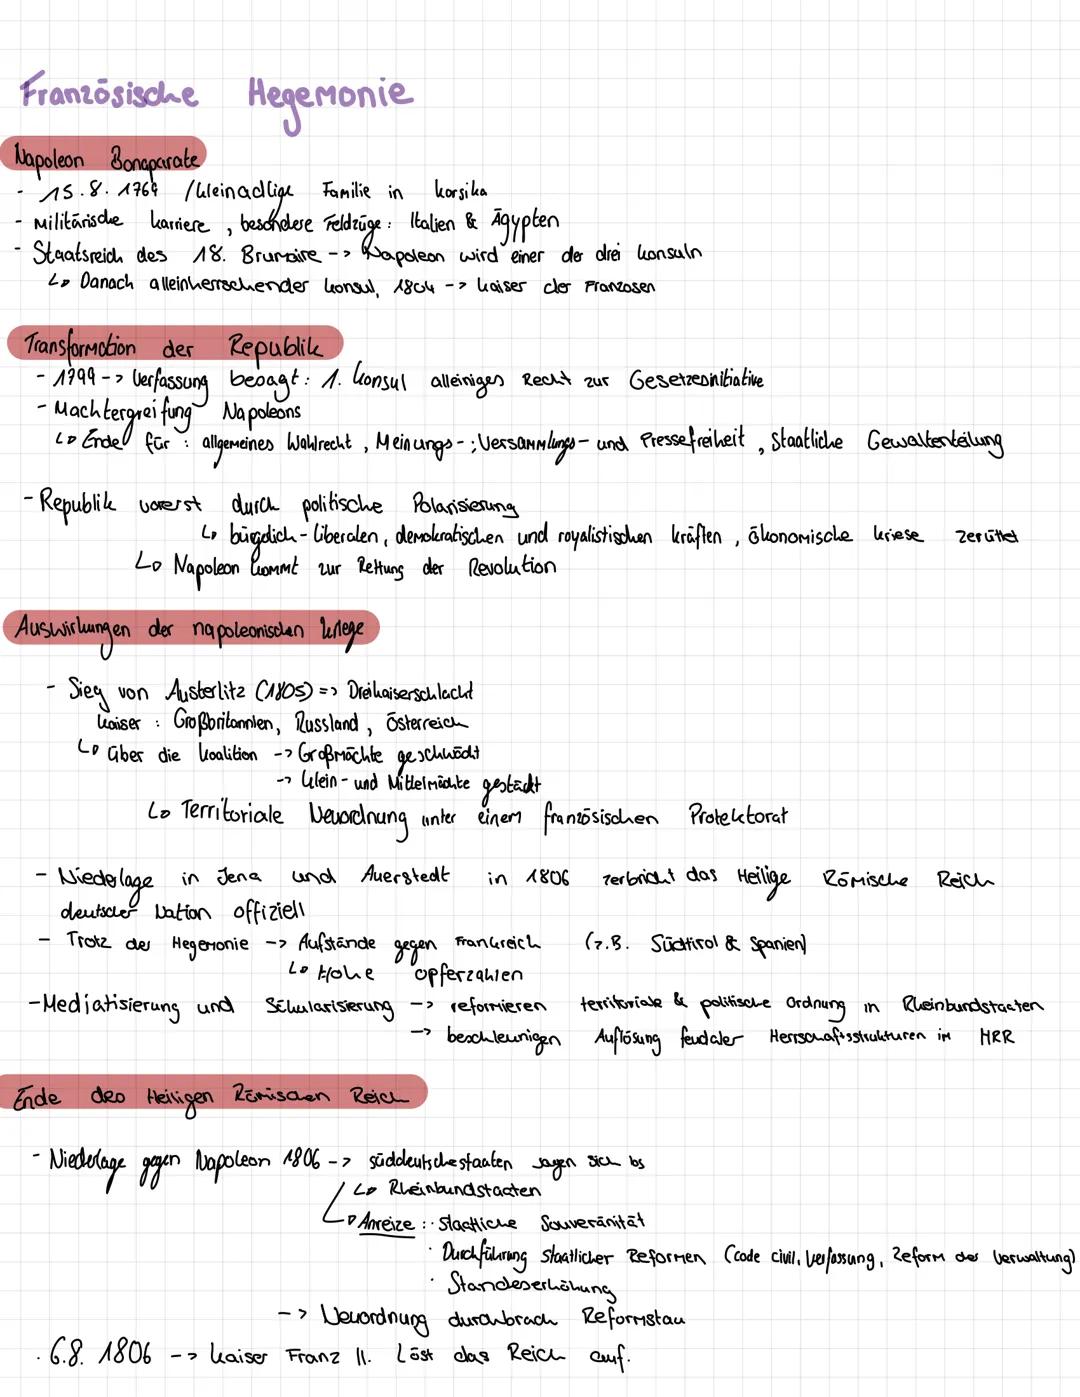 Französische Hegemonie
Napoleon Bonaparate
- 15.8.1769 / Kleinadlige Familie in Korsika
- Militärische Karriere, besondere Feldzüge: Italien & Ägypten
- Staatsreich des 18. Brumaire -> Napoleon wird einer der drei Konsuln
↳ Danach alleinherrschender Konsul, 1804 -> Kaiser der Franzosen
Transformation der Republik
- 1799 -> Verfassung besagt: 1. Konsul alleiniges Recht zur Gesetzesinitiative
- Machtergreifung Napoleons
↳ Ende für: allgemeines Wahlrecht, Meinungs-; Versammlungs- und Pressefreiheit, Staatliche Gewaltenteilung
- Republik vorerst durch politische Polarisierung
↳ bürgdich-liberalen, demokratischen und royalistischen kräften, ökonomische kriese zerüttet
↳ Napoleon kommt zur Rettung der Revolution
Auswirkungen der napoleonischen Kriege
- Sieg von Austerlitz (1805) => Dreikaiserschlacht
Kaiser: Großbritannien, Russland, Österreich
↳ über die Koalition -> Großmächte geschwächt
-> Klein- und Mittelmächte gestäckt
↳ Territoriale Neuordnung unter einem französischen Protektorat
- Niederlage in Jena und Auerstedt in 1806 zerbricht das Heilige Römische Reich
deutscher Nation offiziell
- Trotz der Hegemonie -> Aufstände gegen Frankreich (z.B. Südtirol & Spanien)
↳ Hohe opferzahlen
- Mediatisierung und Sekularisierung -> reformieren territoriale & politische Ordnung in Rheinbundstaaten
-> beschleunigen Auflösung feudaler Herrschaftsstrukturen im HRR
Ende des Heiligen Römischen Reich
- Niederlage gegen Napoleon 1806 -> süddeutschestaaten sagen sich los
↳ Rheinbundstaaten
↳ Anreize: · Staatliche Souveränität
· Durchführung staatlicher Reformen (code civil, Verfassung, Reform der Verwaltung)
· Standeserhöhung
-> Neuordnung durchbrach Reformstau
· 6.8. 1806 --> Kaiser Franz II. Löst das Reich auf.